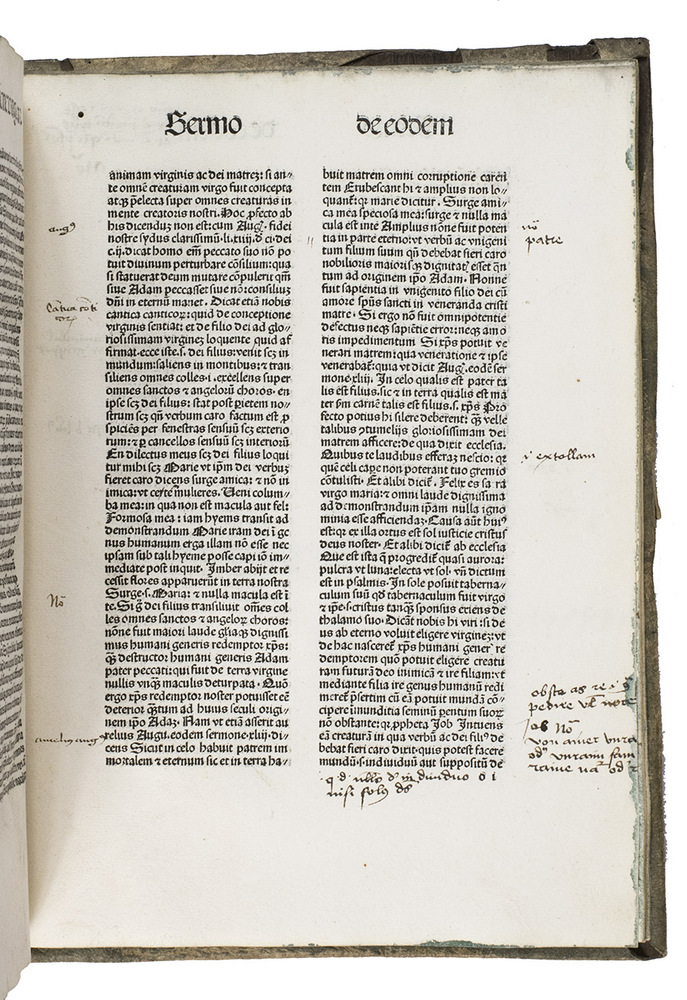 Sermo
de eodem
animam virginis ac dei matrez: si an⸗
te omnē creaturam virgo fuit concepta
mente creatoris nostri. Hoc ꝓfecto ab
his dicenduz non est: cum Augꝰ. fidei
c.ij. dicat homo em̄ peccato suo nō po
tuit diuinum perturbare cōsilium: qua
si statuerat deum mutare cōpulerit qm̄
siue Adam peccasset siue nō: consiliuz
dn̄i in eternū manet. Dicat etiā nobis
cantica canticoꝝ: quid de conceptione
virginis sentiat: et de filio dei ad glo⸗
riosissimam virginez loquente quid af
mundum: saliens in montibus: ⁊ tran
siliens omnes colles. i. excellens super
omnes sanctos ⁊ angeloꝝ choros. en
ipse scz dei filius: stat post pietem no⸗
strum scz qn̄ verbum caro factum est ꝓ
spiciēs per fenestras sensuū scz exterio
rum: ⁊ ꝑ cancellos sensuū scz interiorū
En dilectus meus scz dei filius loqui
tur mihi scz Marie vt ip̄m dei verbuz
fieret caro dicens surge amica: ⁊ nō in
imica: vt ceṙte mulieres. Ueni colum⸗
ba mea: in qua non est macula aut fel:
Formosa mea: iam hyems transit ad
demonstrandum Marie iram dei ī ge
nus humanum erga illam nō esse nec
ipsam sub tali hyeme posse capi iō im⸗
mediate post inquit. Imber abijt et re
cessit flores apparuerūt in terra nostra
Surge. s. Maria: ⁊ nulla macula est ī
te. Si ḡ dei filius transiliuit om̄es col
les omnes sanctos ⁊ angeloꝝ choros:
nōne fuit maiori laude gl̄iaqꝫ dignissi
mus humani generis redemptor xp̄s:
ꝙ destructor humani generis Adam
pater peccati: qui fuit de terra virgine
nullis vnqꝫ maculis deturpata. Quō
ergo xp̄s redemptor noster potuisset eē
deterior ꝙtum ad huius seculi origi⸗
nem ip̄o Adaz. Nam vt etiā asserit au
relius Augu. eodem sermone. xliij. di⸗
cens Sicut in celo habuit patrem im
mortalem ⁊ eternum sic et in terra ha⸗
buit matrem omni corruptione carēt
tem Erubescant hi ⁊ amplius non lo⸗
quant̉: qꝛ marie dicitur. Surge ami⸗
ca mea speciosa mea: surge ⁊ nulla ma
cula est inte Amplius nōne fuit poten
tia in parte eterno: vt verbū ac vnigeni
tum filium suum qn̄ debebat fieri caro
nobilioris maiorisqꝫ dignitat̉ esset qn̄
tum ad originem ip̄o Adam. Nonne
fuit sapientia in vnigenito filio dei cū
amore sp̄us sancti in veneranda cristi
matre. Si ergo nō fuit omnipotentie
defectus neqꝫ sapiētie error: neqꝫ amo
ris impedimentum Si xp̄s potuit ve
nerari matrem: qua veneratione ⁊ ip̄se
venerabat̉: quia vt dicit Augꝰ. eodē ser
mone. xliij. In celo qualis est pater ta
lis est filius. sic ⁊ in terra qualis est ma
ter s̄m carnē talis est filius. s. xp̄s Pro
fecto potius hi silere deberent: ꝙ velle
talibus ꝯtumelijs gloriosissimam dei
matrem afficere: de qua dixit ecclesia.
Quibus te laudibus efferaz nescio: qꝛ
quē celi caꝑe non poterant tuo gremio
cōtulisti. Et alibi dicit̉. Felix es sa ra
virgo maria: ⁊ omni laude dignissima
ad demonstrandum ip̄am nulla igno
minia esse afficiendaz. Causa aūt huiꝰ
est: qꝛ ex illa ortus est sol iusticie cristus
deus noster. Et alibi dicit̉ ab ecclesia
Que est ista q̄ progredit̉ quasi aurora:
pulcra vt luna: electa vt sol. vn̄ dictum
est in psalmis. In sole posuit taberna⸗
culum suū qd̄ tabernaculum fuit virgo
⁊ ip̄e. s. cristus tanqꝫ sponsus exiens de
thalamo suo. Dicāt nobis hi viri: si de
us ab eterno voluit eligere virginez: vt
de hac nasceret̉ xp̄s humani gener̉ re
demptorem quō potuit eligere creatu
ram futurā deo inimicā ⁊ ire filiam: vt
mediante filia ire genus humanū redi
meret ꝑsertim cū eā potuit mundā cō⸗
cipere īmunditia seminū ꝑentum suoꝝ
nō obstante: qꝛ ꝓpheta Job Intuens
eā creaturā in qua verbū ac dei filiꝰ de
bebat fieri caro dixit. quis potest facere
mundū. s. indiuiduū aut suppositū de
augꝰ
Nō
patre
extollam
Nō